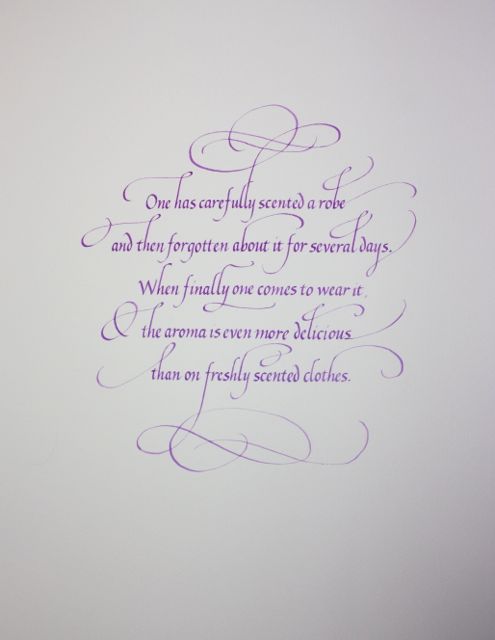 One has carefully scented a robe
and then forgotten about it for several days.
When finally one comes to wear it,
the aroma is even more delicious
than on freshly scented clothes.